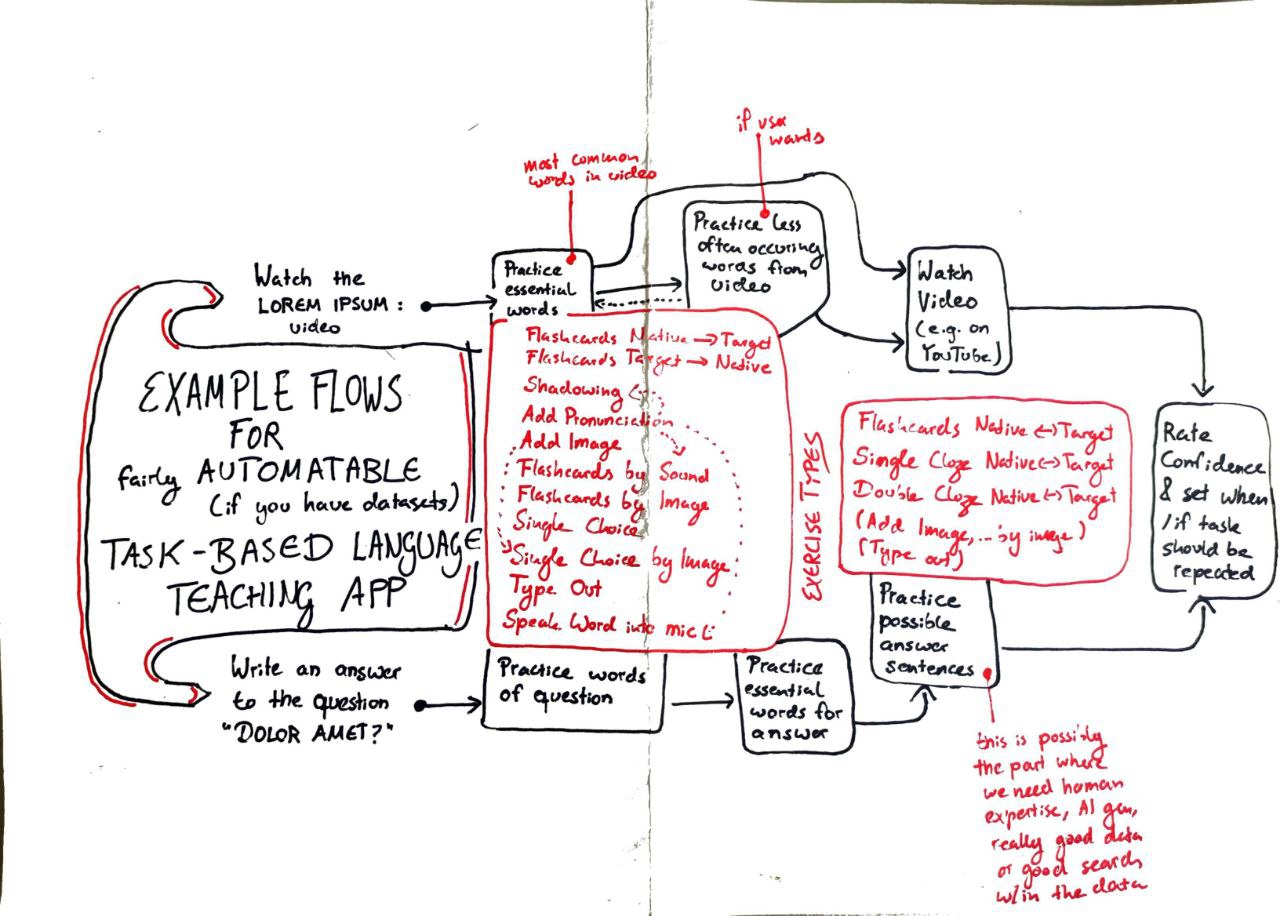 if user
wants
most common
words in video
Practice less
often occuring
words from
video
Watch the
LOREM IPSUM:
video
Practice
essential
words
Watch
Video
(e.g. on
YouTube)
EXAMPLE FLOWS
FOR
fairly AUTOMATABLE
(if you have datasets)
TASK-BASED LANGUAGE
TEACHING APP
Flashcards Native → Target
Flashcards Target → Native
Shadowing
Add Pronunciation
Add Image
Flashcards by Sound
Flashcards by Image
Single Choice
Single Choice by Image
Type Out
Speak Word into mic
EXERCISE TYPES
Flashcards Native ↔ Target
Single Cloze Native ↔ Target
Double Cloze Native ↔ Target
(Add Image, ... by image)
(Type out)
Rate
Confidence
& set when
/if task
should be
repeated
Write an answer
to the question
"DOLOR AMET?"
Practice words
of question
Practice
essential
words for
answer
Practice
possible
answer
sentences
this is possibly
the part where
we need human
expertise, AI gen,
really good data
or good search
w/in the data